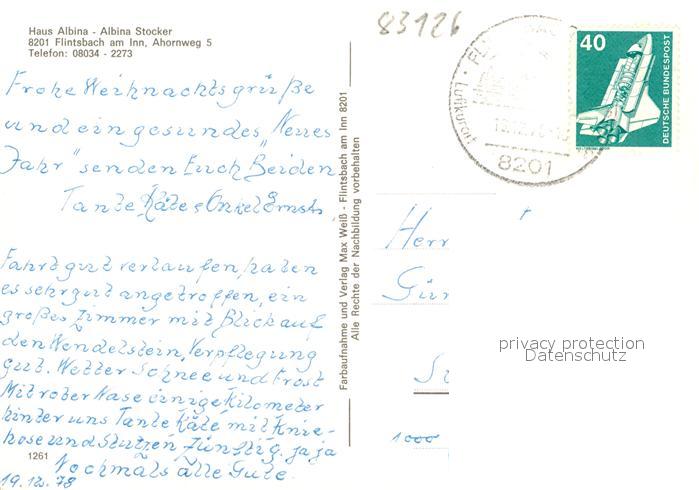 Haus Albina - Albina Stocker
8201 Flintsbach am Inn, Ahornweg 5
Telefon: 08034 - 2273
Frohe Weihnachtsgrüße
und ein gesundes „Neues
Jahr" senden Euch Beiden
Tante Käte & Onkel Ernst.
Fahrt gut verlaufen, haben
es sehr gut angetroffen, ein
großes Zimmer mit Blick auf
den Wendelstein, Verpflegung
gut. Wetter Schnee und Frost
Mit roter Nase einige Kilometer
hinter uns Tante Käte mit Knie-
hose und Stutzen zünftig. ja ja
Nochmals alle Gute.
1261
19.12.78
Farbaufnahme und Verlag Max Weiß - Flintsbach am Inn 8201
Alle Rechte der Nachbildung vorbehalten
83126
Luftkurort
8201
40
DEUTSCHE BUNDESPOST
Herr
Gün
1000
privacy protection
Datenschutz